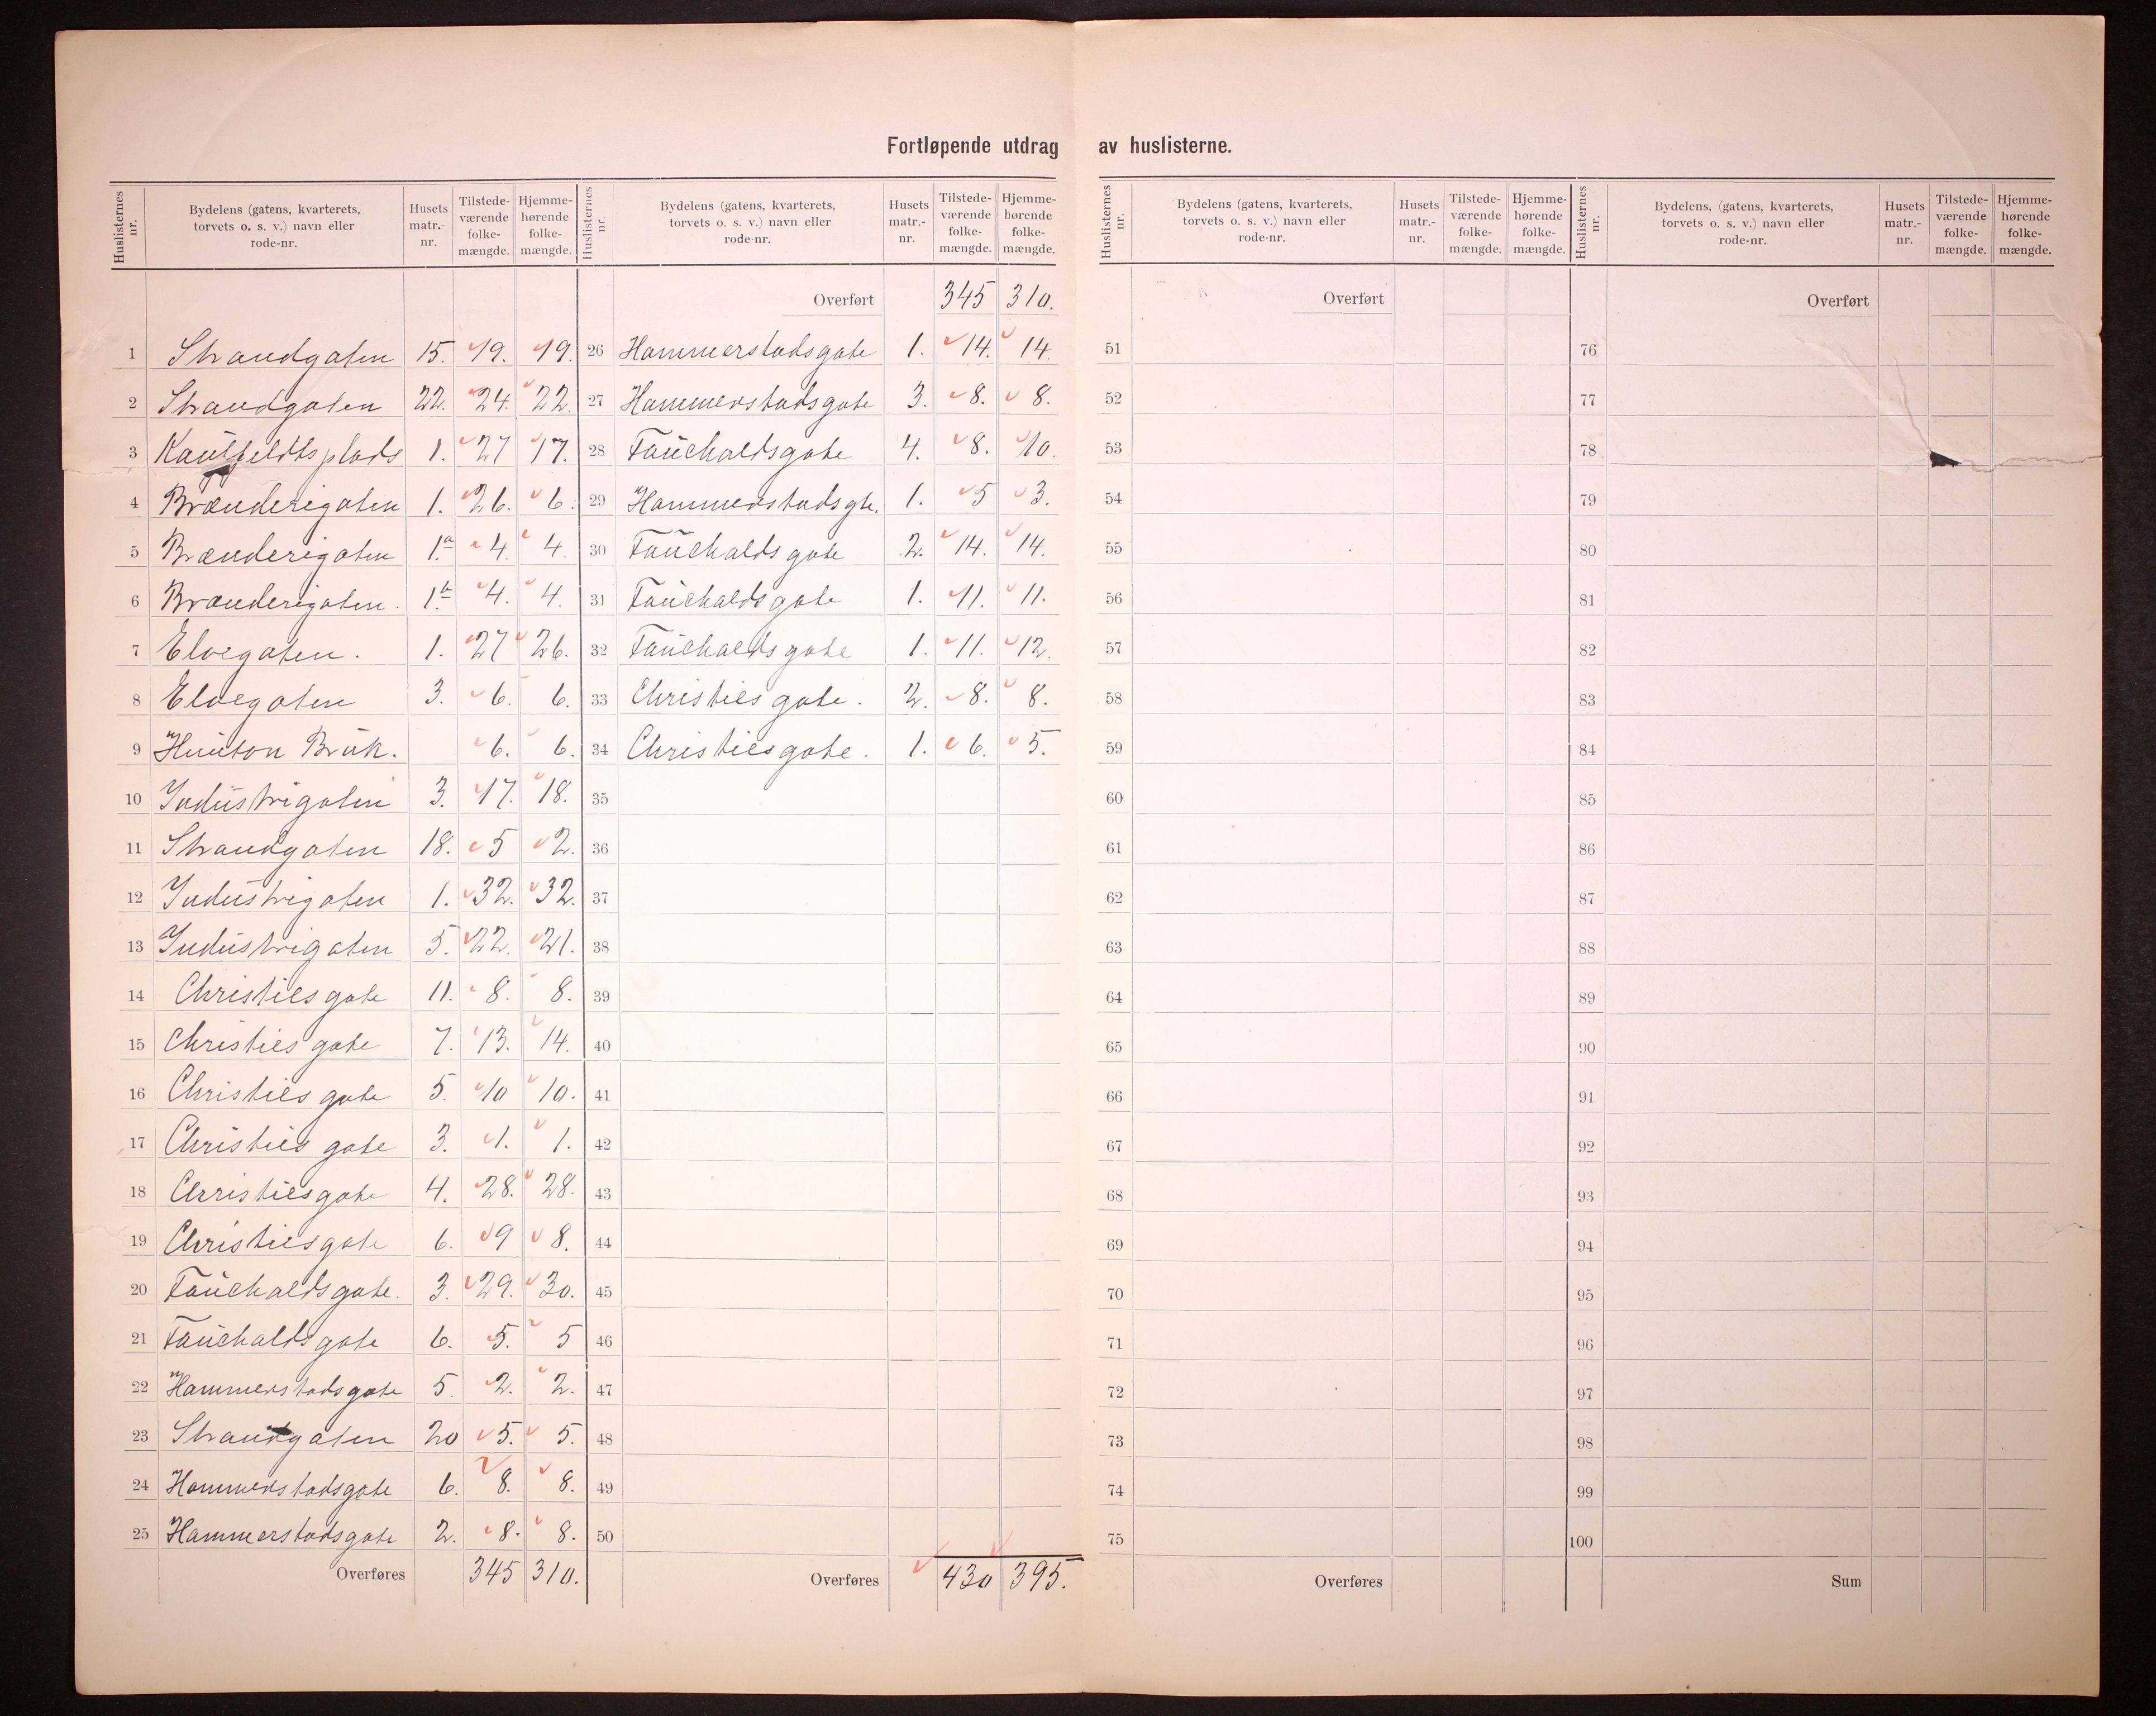 Fortløpende utdrag av huslisterne.
Huslisternes nr. | Bydelens (gatens, kvarterets, torvets o. s. v.) navn eller rode-nr. | Husets matr.-nr. | Tilstede-værende folke-mængde. | Hjemme-hørende folke-mængde.
1 Strandgaten 15. 19. 19.
2 Strandgaten 22. 24. 22.
3 Kaulfeldts plads 1. 27 17.
4 Brænderigaten 1. 26. 6.
5 Brænderigaten 1.a 4. 4.
6 Brænderigaten. 1.b 4. 4.
7 Elvegaten. 1. 27 26.
8 Elvegaten 3. 6. 6.
9 Hunton Bruk. 6. 6.
10 Industrigaten 3. 17. 18.
11 Strandgaten 18. 5 2.
12 Industrigaten 1. 32. 32.
13 Industrigaten 5. 22. 21.
14 Christies gate 11. 8. 8.
15 Christies gate 7. 13. 14.
16 Christies gate 5. 10 10.
17 Christies gate 3. 1. 1.
18 Christies gate 4. 28. 28.
19 Christies gate 6. 9 8.
20 Fauchalds gate. 3. 29. 30.
21 Fauchalds gate 6. 5. 5
22 Hammerstads gate 5. 2. 2.
23 Strandgaten 20 5. 5.
24 Hammerstadsgate 6. 8. 8.
25 Hammerstadsgate 2. 8. 8.
Overføres 345 310.
Huslisternes nr. | Bydelens (gatens, kvarterets, torvets o. s. v.) navn eller rode-nr. | Husets matr.-nr. | Tilstede-værende folke-mængde. | Hjemme-hørende folke-mængde.
Overført 345 310.
26 Hammerstads gate 1. 14. 14.
27 Hammerstads gate 3. 8. 8.
28 Fauchaldsgate 4. 8. 10.
29 Hammerstads gte. 1. 5 3.
30 Fauchalds gate 2. 14. 14.
31 Fauchalds gate 1. 11. 11.
32 Fauchalds gate 1. 11. 12.
33 Christies gate. 2. 8. 8.
34 Christies gate. 1. 6. 5.
35
36
37
38
39
40
41
42
43
44
45
46
47
48
49
50
Overføres 430 395.
Huslisternes nr. | Bydelens (gatens, kvarterets, torvets o. s. v.) navn eller rode-nr. | Husets matr.-nr. | Tilstede-værende folke-mængde. | Hjemme-hørende folke-mængde.
Overført
51
52
53
54
55
56
57
58
59
60
61
62
63
64
65
66
67
68
69
70
71
72
73
74
75
Overføres
Huslisternes nr. | Bydelens, (gatens, kvarterets, torvets o. s. v.) navn eller rode-nr. | Husets matr.-nr. | Tilstede-værende folke-mængde. | Hjemme-hørende folke-mængde.
Overført
76
77
78
79
80
81
82
83
84
85
86
87
88
89
90
91
92
93
94
95
96
97
98
99
100
Sum